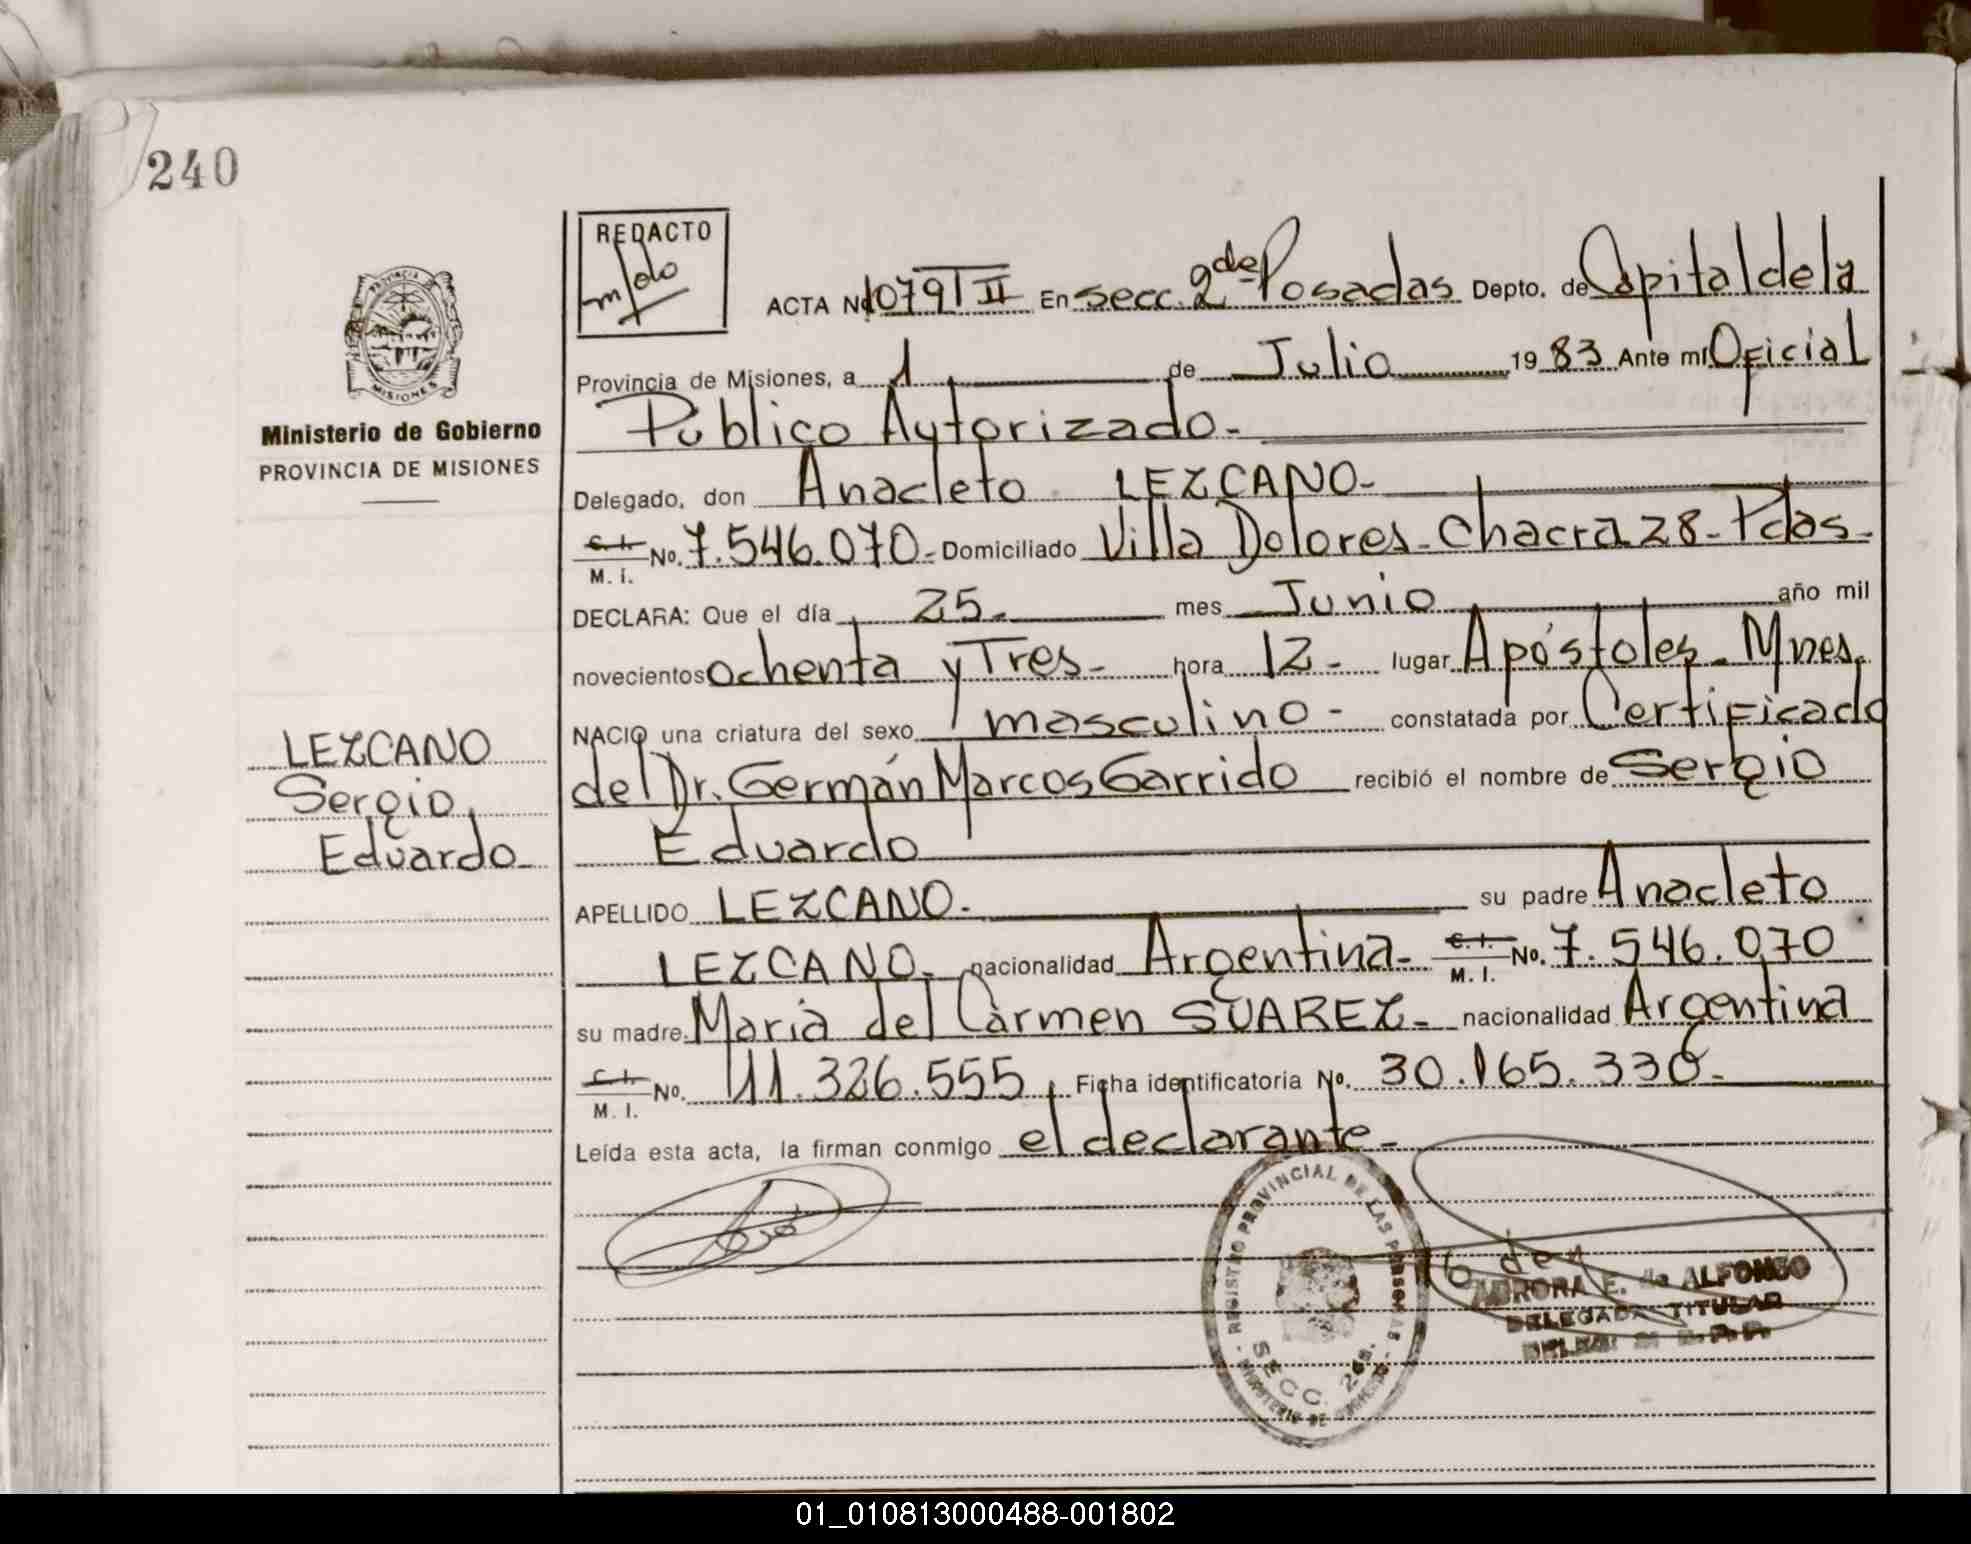 240
REDACTO
ACTA Nº 1079 T II En secc. 2da de Posadas Depto. de Capital de la
Provincia de Misiones, a 1 de Julio 1983 Ante mí Oficial
Público Autorizado.-
Ministerio de Gobierno
PROVINCIA DE MISIONES
Delegado, don Anacleto LEZCANO-
C. I. M. I. No. 7.546.070- Domiciliado Villa Dolores- Chacra 28- Pdas-
DECLARA: Que el día 25- mes Junio año mil
novecientos Ochenta y Tres- hora 12- lugar Apóstoles- Mnes.
NACIO una criatura del sexo masculino- constatada por Certificado
del Dr. Germán Marcos Garrido recibió el nombre de Sergio
Eduardo
LEZCANO
Sergio
Eduardo-
APELLIDO LEZCANO- su padre Anacleto
LEZCANO- nacionalidad Argentina- C. I. M. I. No. 7.546.070
su madre Maria del Carmen SUAREZ- nacionalidad Argentina
C. I. M. I. No. 11.326.555, Ficha identificatoria No. 30.165.330-
Leída esta acta, la firman conmigo el declarante-
REGISTRO PROVINCIAL DE LAS PERSONAS
SECC. 2da.
AURORA E. de ALFONSO
DELEGADA TITULAR
01_010813000488-001802